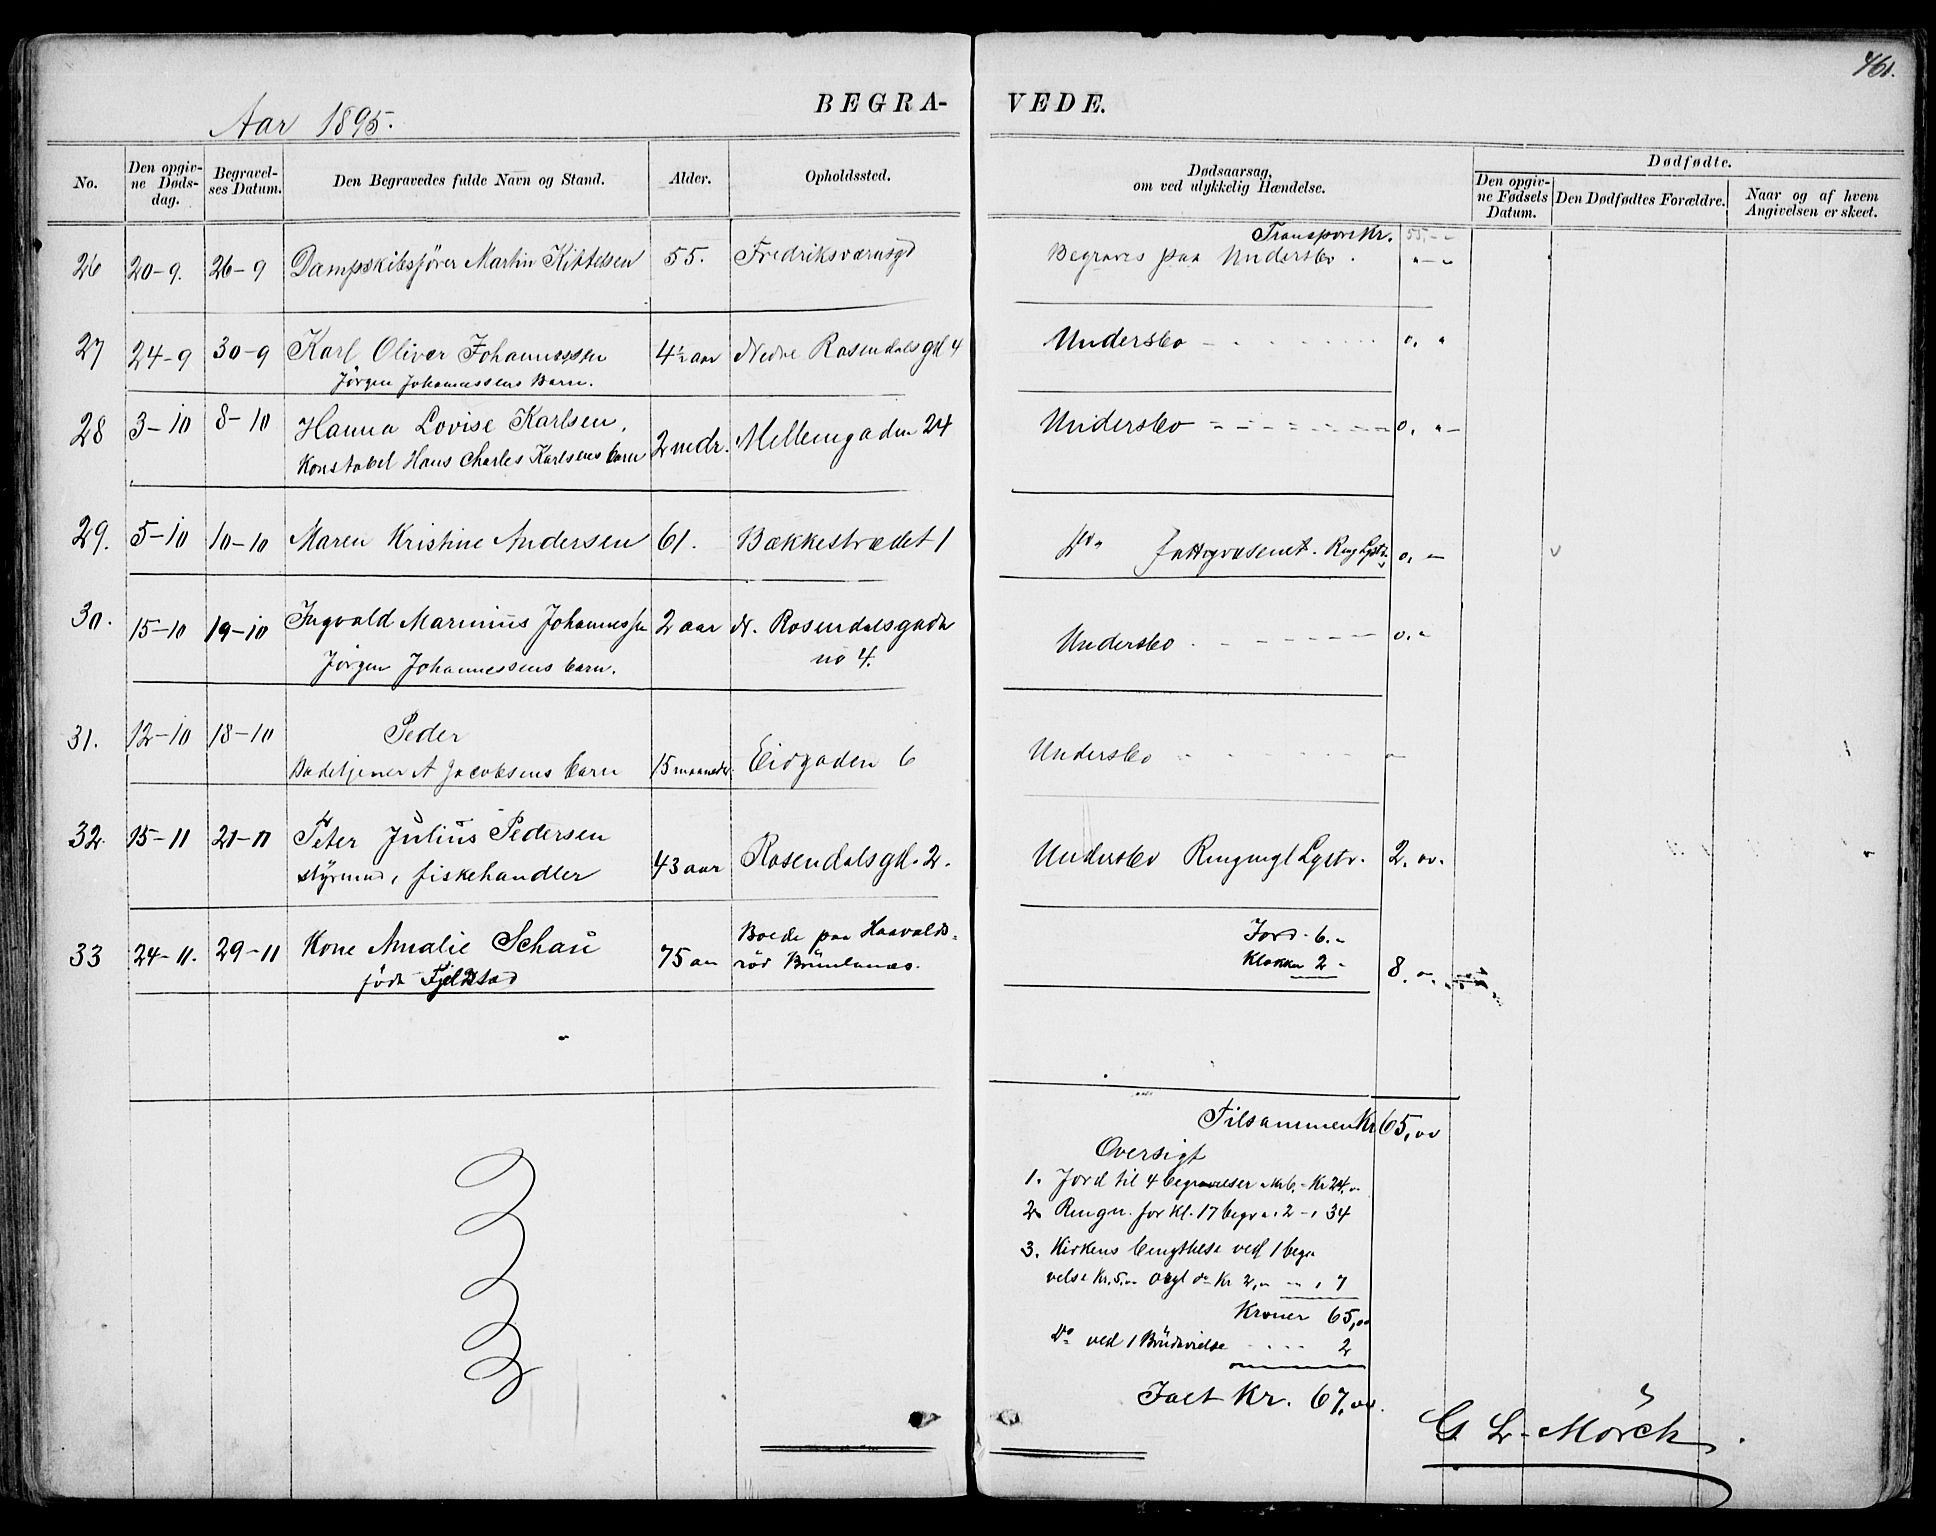 461.
BEGRA- VEDE.
Aar 1895.
No.
Den opgiv-
ne Døds-
dag.
Begravel-
ses Datum.
Den Begravedes fulde Navn og Stand.
Alder.
Opholdssted.
Dødsaarsag,
om ved ulykkelig Hændelse.
Dødfødte.
Den opgiv-
ne Fødsels
Datum.
Den Dødfødtes Forældre.
Naar og af hvem
Angivelsen er skeet.
Transport Kr. 55,--
26 20-9. 26-9 Dampskibsfører Martin Kittelsen 55. Fredriksværnsgd Begraves paa Undersbo. " - "
27 24-9 30-9 Karl Oliver Johannessen 4½ aar Nedre Rosendalsgd 4 Undersbo - - - - 0, "
Jörgen Johannessens Barn.
28 3-10 8-10 Hanna Lovise Karlsen, 2 mdr. Mellemgaden 24 Undersbo - - - - 0, " -
Konstabel Hans Charles Karlsens barn
29. 5-10 10-10 Maren Kristine Andersen 61. Bækkestrædet 1 Do fattigvæsenet. Ring Lystr 0, -
30. 15-10 19-10 Ingvald Marinius Johannessen 2 aar N. Rosendalsgade Undersbo - - - - 0, -
Jørgen Johannessens barn. no 4.
31. 12-10 18-10 Peder
Badetjener A Jacobsens barn 15 maaneder. Eidgaden 6 Undersbo - - - -
32. 15-11 21-11 Peter Julius Pedersen
styrmand, fiskehandler 43 aar Rosendalsgd. 2. Undersbo Ringning Lystr. 2. 00.
33 24-11. 29-11 Kone Amalie Schau 75 aar Boede paa Haavalds-
föd Fjeldstad rød Brunlanæs.
Jord - 6. -
Klokker 2 - 8. 0
Tilsammen Kr 65,00
Oversigt
1. Jord til 4 begravelser a Kr 6. - Kr 24,-
2. Ringn. for Kl. 17 begr a. 2 - , 34
3. Kirkens benyttelse ved 1 begra
velse Kr. 5,00 Orgl do Kr 2,00 - , 7
Kroner 65,00
Do ved 1 Brudevielse . . . . 2
Ialt Kr. 67,00.
G L. Mörch.